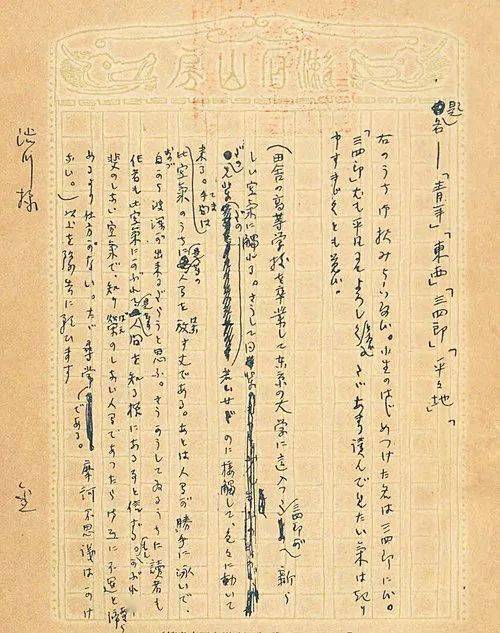 漱石山房
題名―「青年」「東西」「三四郎」「平々地」
右のうち御択み下さい。小生のはじめつけた名は三四郎に候。
「三四郎」尤も平凡にてよろしくと存候。たゞあまり読んで見たい気は起り
申すまじくとも覚候。
（田舎の高等学校を卒業して東京の大学に這入つた三四郎が新ら
しい空気に触れる。さうして同輩だの
先輩だの若い女だのに接触して、色々に動いて
来る。手間は
此空気のうちに是等の人間を放す丈である。あとは人間が勝手に泳いで、
自から波瀾が出来るだらうと思ふ。さうかうしてゐるうちに読者も
作者も此空気にかぶれて是等の人間を知る様になる事と信ずる。もしかぶれ
甲斐のしない空気で、知り栄のしない人間であつたら御互に不運と諦
めるより仕方がない。たゞ尋常である。摩訶不思議は書け
ない。）以上を予告に願ひます
渋川様 金